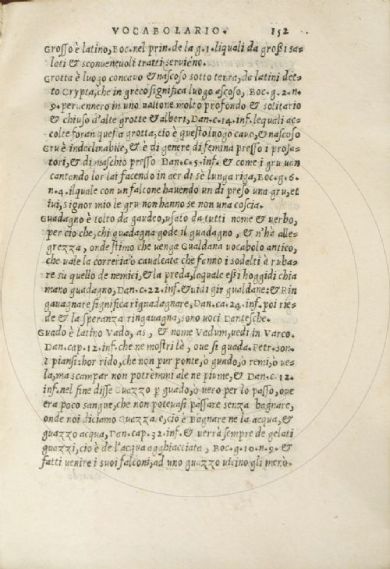 VOCABOLARIO. 152
Grosso è latino, Boc. nel prin. de la g. 1. li quali da grossi sa-
lari & sconueneuoli tratti seruiéno.
Grotta è luogo concauo & nascoso sotto terra, da latini det-
to Crypta, che in greco significa luogo ascoso, Boc. g. 2. n.
9. peruennero in uno uallone molto profondo & solitario
& chiuso d'alte grotte & alberi, Dan. c. 14. inf. le quali ac-
colte foran quest'a grotta; cio è questo luogo cauo, & nascoso
Gru è indeclinabile, & è di genere di femina presso i prosa-
tori, & di maschio presso Dan. c. 5. inf. & come i gru uan
cantando lor lai facendo in aer di sè lunga riga, Boc. g. 6.
n. 4. il quale con un falcone hauendo un di preso una gru, et
iui, signor mio le gru non hanno se non una coscia.
Guadagno è tolto da gaudeo, usato da tutti nome & uerbo,
per cio che, chi guadagna gode il guadagno, & n'ha alle-
grezza, onde stimo che uenga Gualdana uocabolo antico,
che uale la correria o caualcata che fanno i soldati à ruba-
re su quello de nemici, & la preda, laquale essi hoggidi chia
mano guadagno, Dan. c. 22. inf. & uidi gir gualdane: & Rin
gauagnare significa riguadagnare, Dan. ca. 24. inf. poi rie-
de & la speranza ringauagna; sono uoci Dantesche.
Guado è latino Vado, as, & nome Vadum, uedi in Varco.
Dan. cap. 12. inf. che ne mostri là, oue si guada. Petr. son.
i piansi: hor rido, che non pur ponte, o guado, o remi, o ue-
la, ma scampar non potrémmi ale ne piume, & Dan. c. 12.
inf. nel fine disse Guazzo p guado, o uero per lo passo, oue
era poco sangue, che non poteuasi passare senza bagnare,
onde noi diciamo Guazzare, cio è Bagnare ne la acqua, &
guazzo acqua, Dan. cap. 32. inf. & uerrà sempre de gelati
guazzi, cio è de l'acqua agghiacciata, Boc. g. 10. n. 9. &
fatti uenire i suoi falconi, ad uno guazzo uicino gli menò.